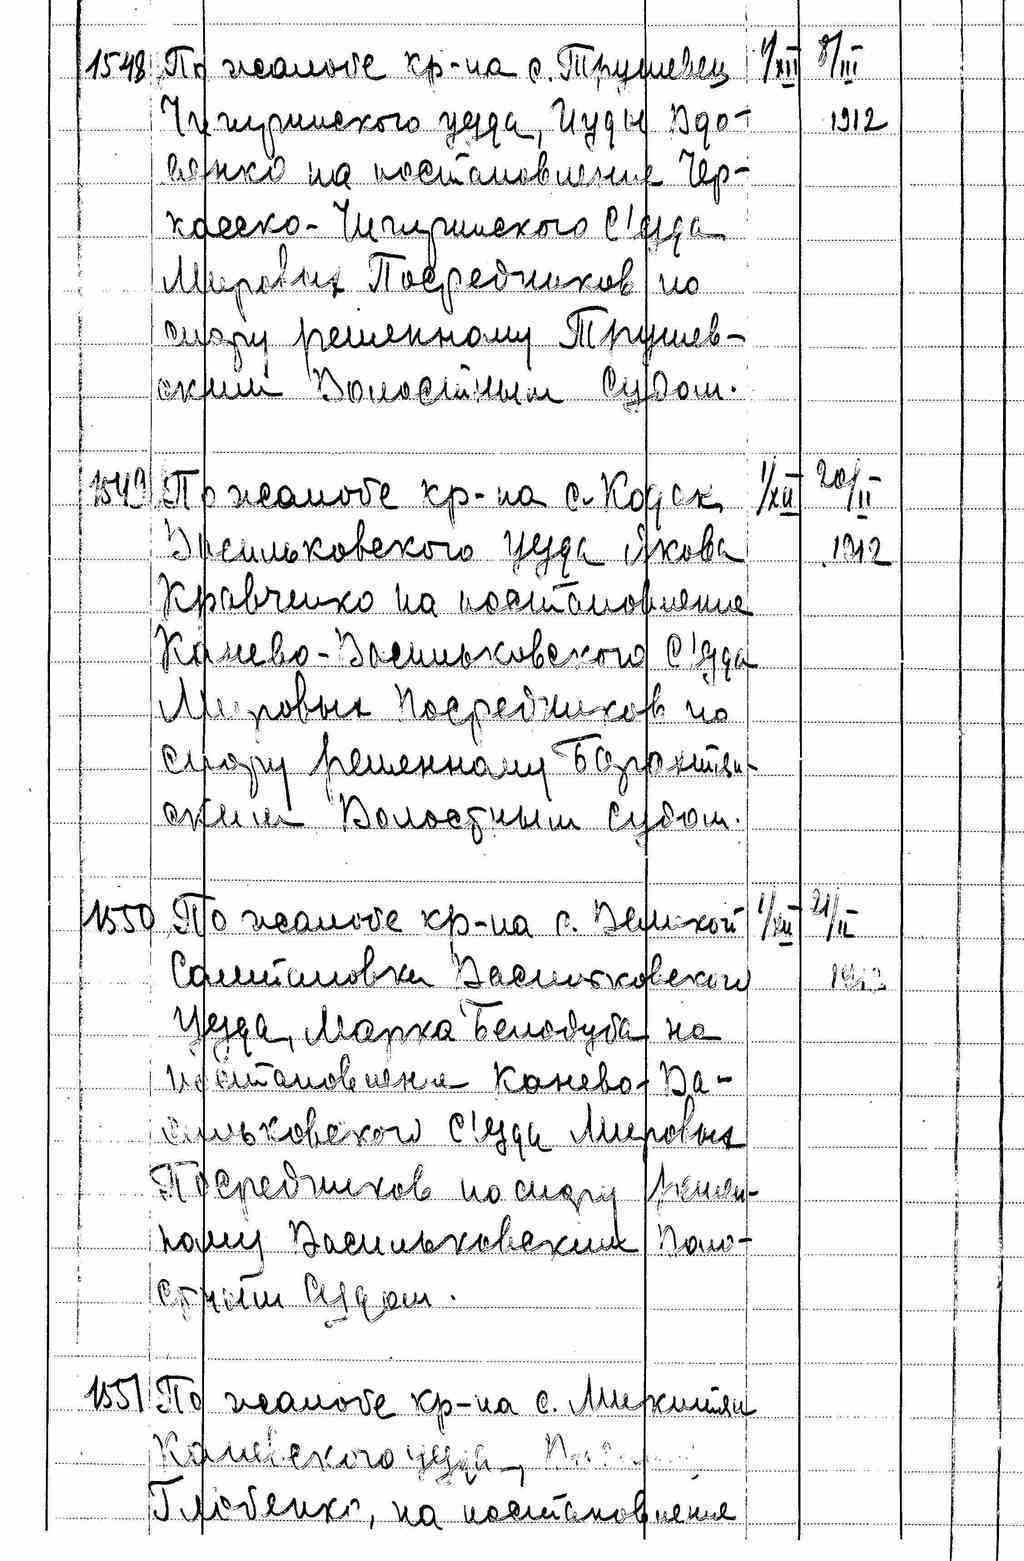 1548 По жалобе кр-на с. Трушевец 1/XII 8/III
Чигиринского уезда, Иуды Вдо- 1912
венко на постановление Чер-
касско-Чигиринского С'езда
Мировых Посредников по
спору решенному Трушев-
ским Волостным Судом.
1549 По жалобе кр-на с. Кодак, 1/XII 20/II
Васильковского уезда Якова 1912
Кравченко на постановление
Канево-Васильковского С'езда
Мировых Посредников по
спору решенному Барахтян-
ским Волостным Судом.
1550 По жалобе кр-на с. Великой 1/XII 21/II
Салтановки Васильковского
уезда, Марка Белодуба на
постановление Канево-Ва-
сильковского С'езда Мировых
Посредников по спору решен-
ному Васильковским Воло-
стным Судом.
1551 По жалобе кр-на с. Микитян
Каневского уезда,
Глобенко, на постановление